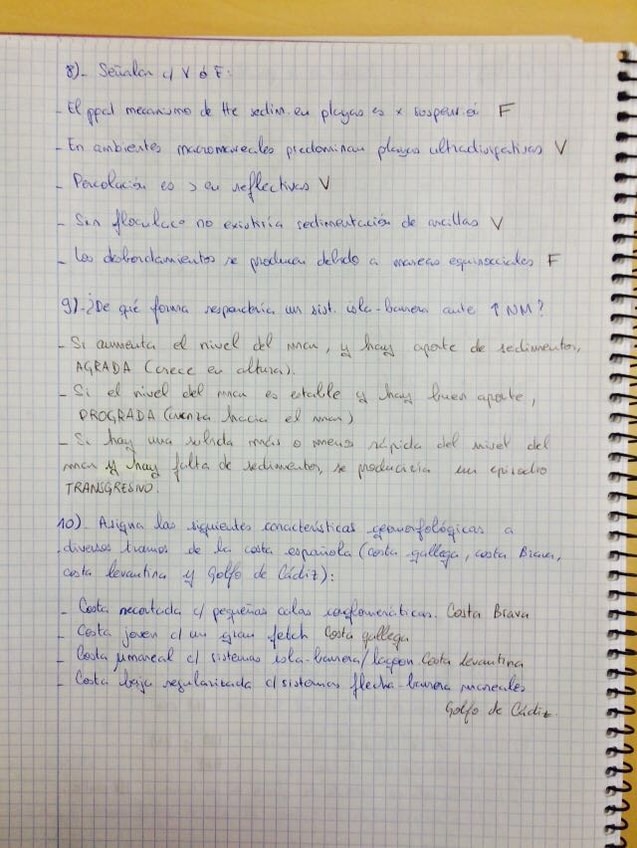 8)- Señalar c/ V ó F:
- El ppal mecanismo de tte sedim. en playas es x suspensión F
- En ambientes macromareales predominan playas ultradisipativas V
- Percolación es > en reflectivas V
- Sin floculac° no existiría sedimentación de arcillas V
- Los desbordamientos se producen debido a mareas equinocciales F
9)- ¿De qué forma respondería un sist. isla-barrera ante ↑ NM?
- Si aumenta el nivel del mar, y hay aporte de sedimentos,
AGRADA (crece en altura).
- Si el nivel del mar es estable y hay buen aporte,
PROGRADA (avanza hacia el mar)
- Si hay una subida más o menos rápida del nivel del
mar y hay falta de sedimentos, se produciría un episodio
TRANSGRESIVO.
10)- Asigna las siguientes características geomorfológicas a
diversos tramos de la costa española (costa gallega, costa Brava,
costa levantina y Golfo de Cádiz):
- Costa recortada c/ pequeñas calas conglomeráticas. Costa Brava
- Costa joven c/ un gran fetch Costa gallega
- Costa µmareal c/ sistemas isla-barrera/lagoon Costa levantina
- Costa baja regularizada c/ sistemas flecha-barrera mareales
Golfo de Cádiz.